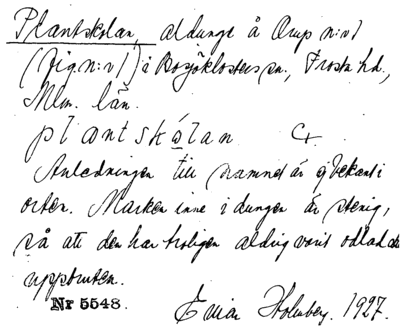 Plantskolan, aldunge å Orup n:o1
(fig n:o 1) i Bosjöklosters sn., Frosta hd.,
Mlm. län.
plantskólan
Anledningen till namnet är ej bekant i
orten. Marken inne i dungen är stenig,
så att den har troligen aldrig varit odlad el.
uppbruten.
Nr 5548 Einar Holmberg. 1927.